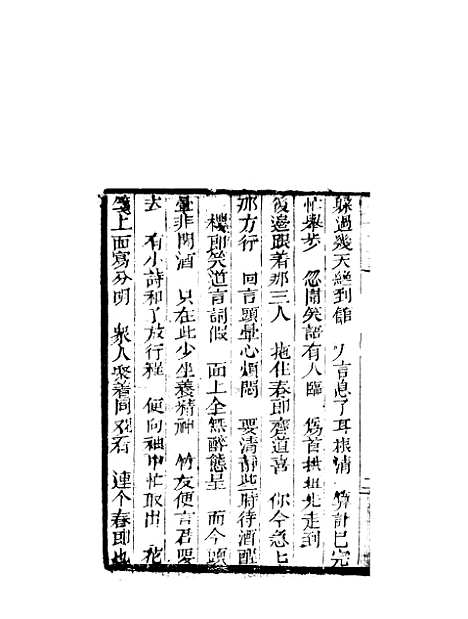 躲過幾天纔到館 人言息了耳根清 算計已完
忙舉步 忽聞笑語有人臨 爲首拱拱先走到
後邊跟着那三人 拖住春郎齊道喜 你今急占
那方行 回言頭暈心煩悶 要清靜些時待酒醒
櫻郎笑道言詞假 面上全無醉態呈 而今頭
暈非関酒 只在此少坐養精神 竹友便言君要
去 有小詩和了放行程 便向袖中忙取出 花
箋上面寫分明 衆人聚着同观看 連个春郎也